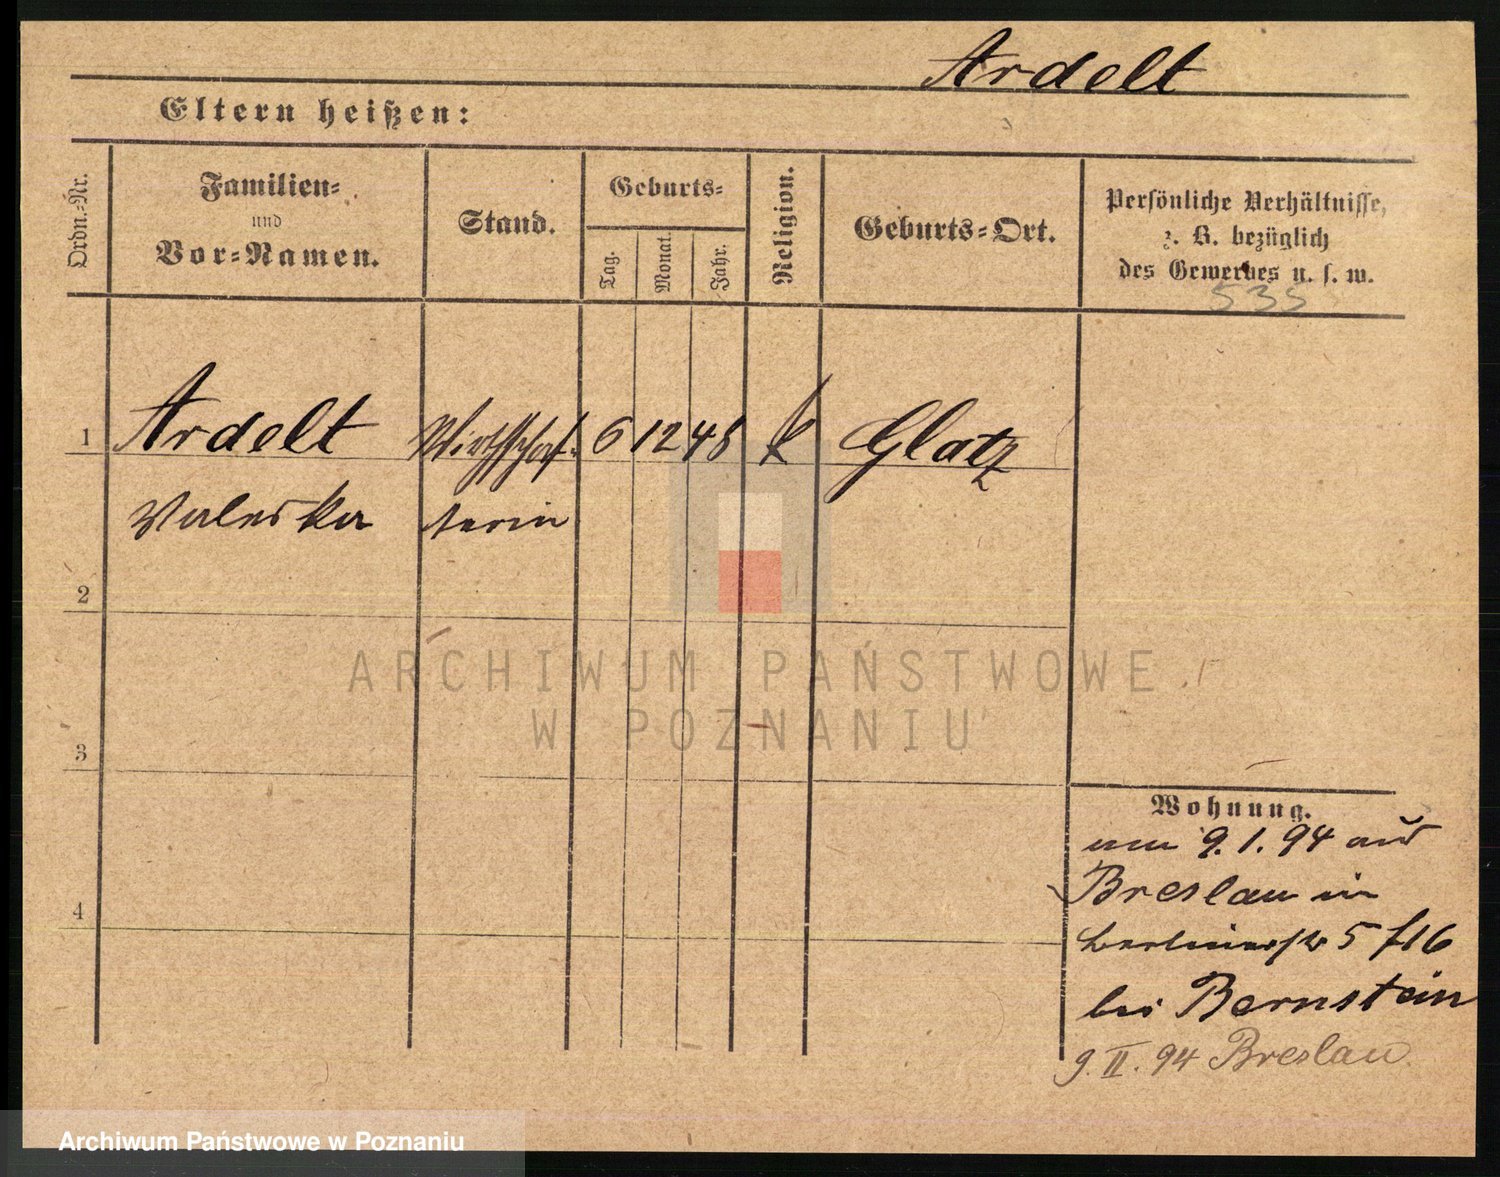 Ardelt
Eltern heißen:
Ordn.-Nr.
Familien-
und
Vor-Namen.
Stand.
Geburts-
Tag.
Monat.
Jahr.
Religion.
Geburts-Ort.
Persönliche Verhältnisse,
z. B. bezüglich
des Gewerbes u. s. w.
535
1
Ardelt
Wirthschaf-
6
12
48
k
Glatz
Valeska
terin
2
ARCHIWUM PAŃSTWOWE
W POZNANIU
3
Wohnung.
9. 1. 94 aus
Breslau in
4
Berlinerstr 5
bei Bernstein
9. II. 94 Breslau
Archiwum Państwowe w Poznaniu